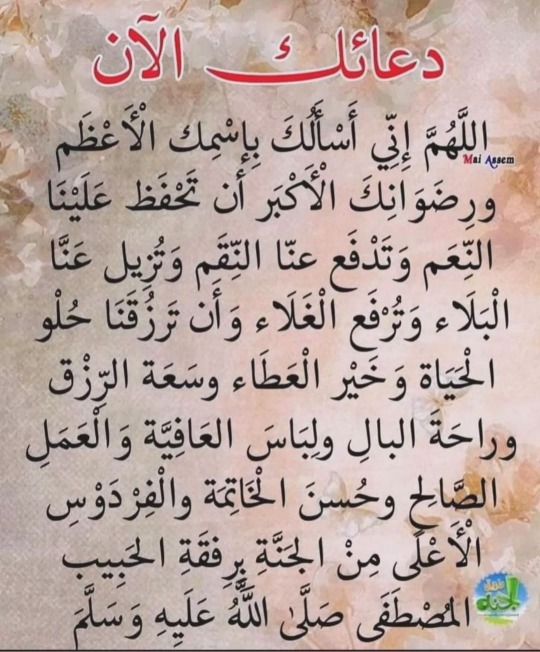 دعائك الآن
اللَّهُمَّ إِنِّي أَسْأَلُكَ بِإِسْمِك الْأَعْظَم
Mai Assem
ورِضَوَانِكَ الْأَكْبَر أَن تَحْفَظ عَلَيْنَا
النِّعَم وَتَدْفَع عنّا النِّقَم وَتُزِيل عَنَّا
الْبَلَاء وَتُرْفَع الْغَلَاء وَأَن تَرزُقَنَا حُلْو
الْحَيَاة وَخَيْر الْعَطَاء وسَعَة الرِّزْق
وراحَةَ البالِ ولِبَاسَ العَافِيَّة وَالْعَمَلِ
الصَّالِحِ وحُسنَ الْخَاتِمَة والْفِرْدَوْسِ
الْأَعْلَى مِنْ الجَنَّةِ بِرِفقَةِ الحَبِيب
المُصْطَفَى صَلَّىٰ اللَّهُ عَلَيهِ وَسَلَّمَ